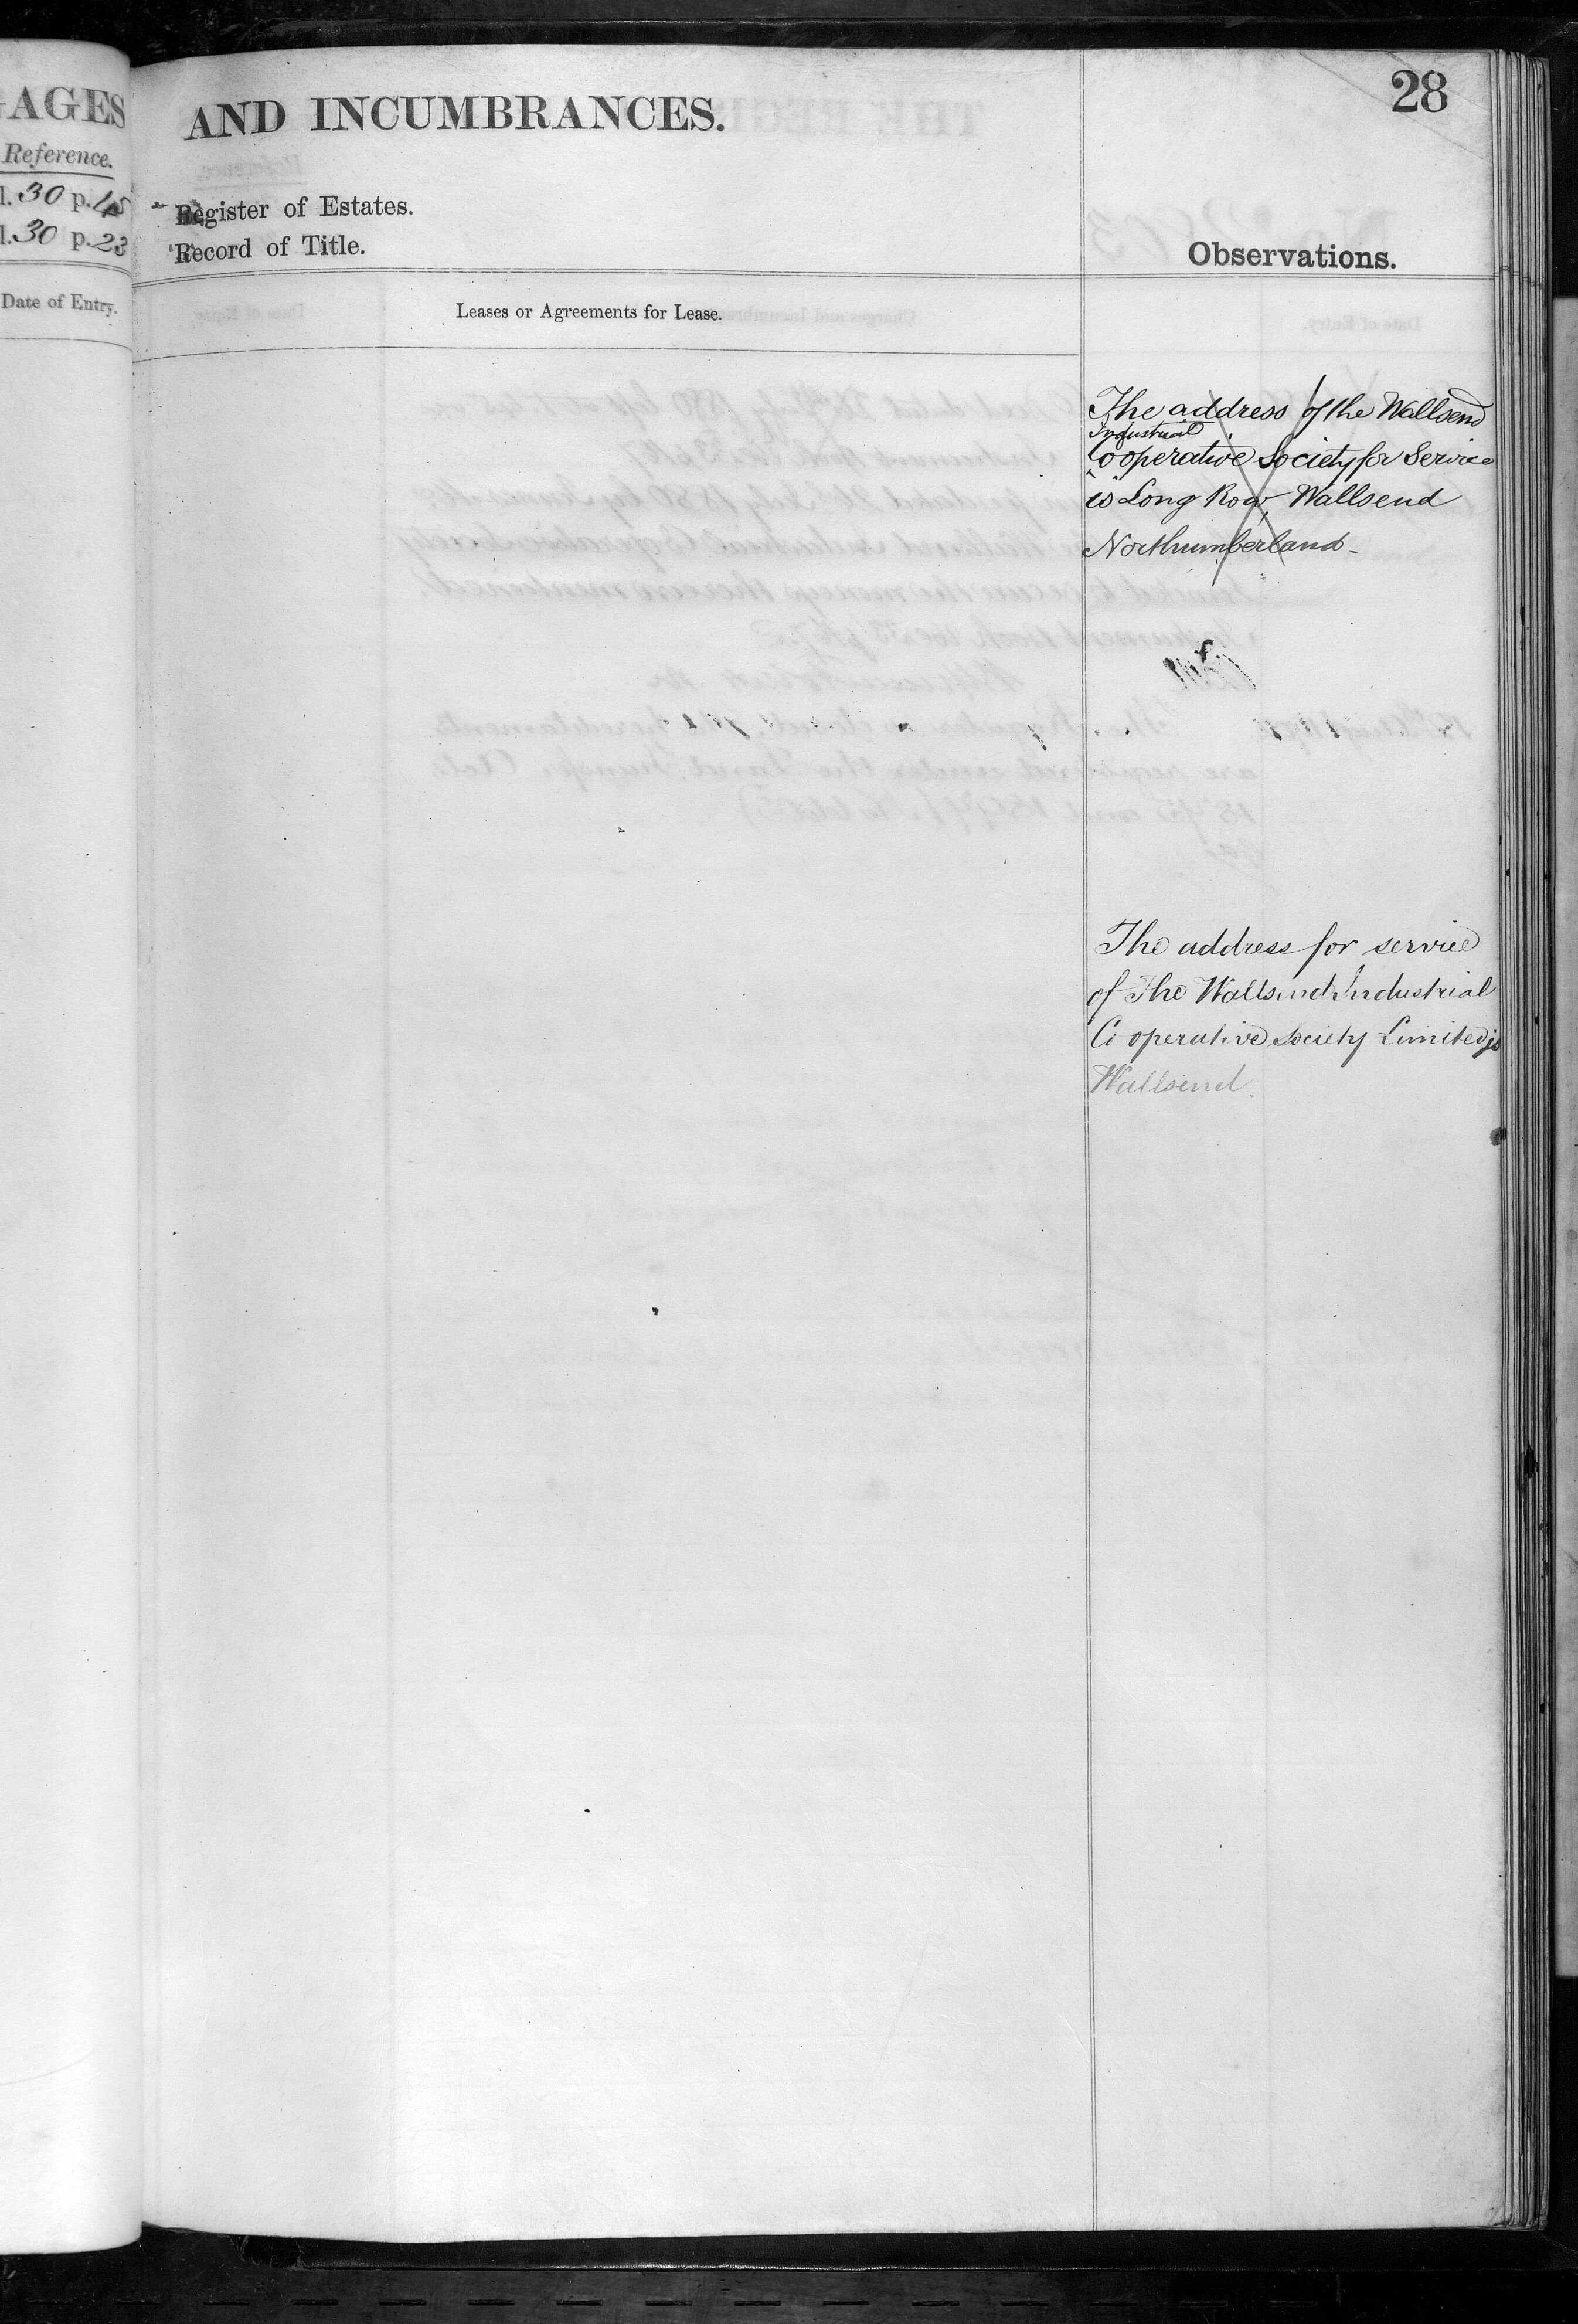 AGES
Reference.
l. 30 p. 15
l. 30 p. 23
Date of Entry.
AND INCUMBRANCES.
28
Register of Estates.
Record of Title.
Observations.
Leases or Agreements for Lease.
The address of the Wallsend
Industrial
Cooperative Society for Service
is Long Row, Wallsend
Northumberland-
The address for service
of The Wallsend Industrial
Co operative Society Limited is
Wallsend.